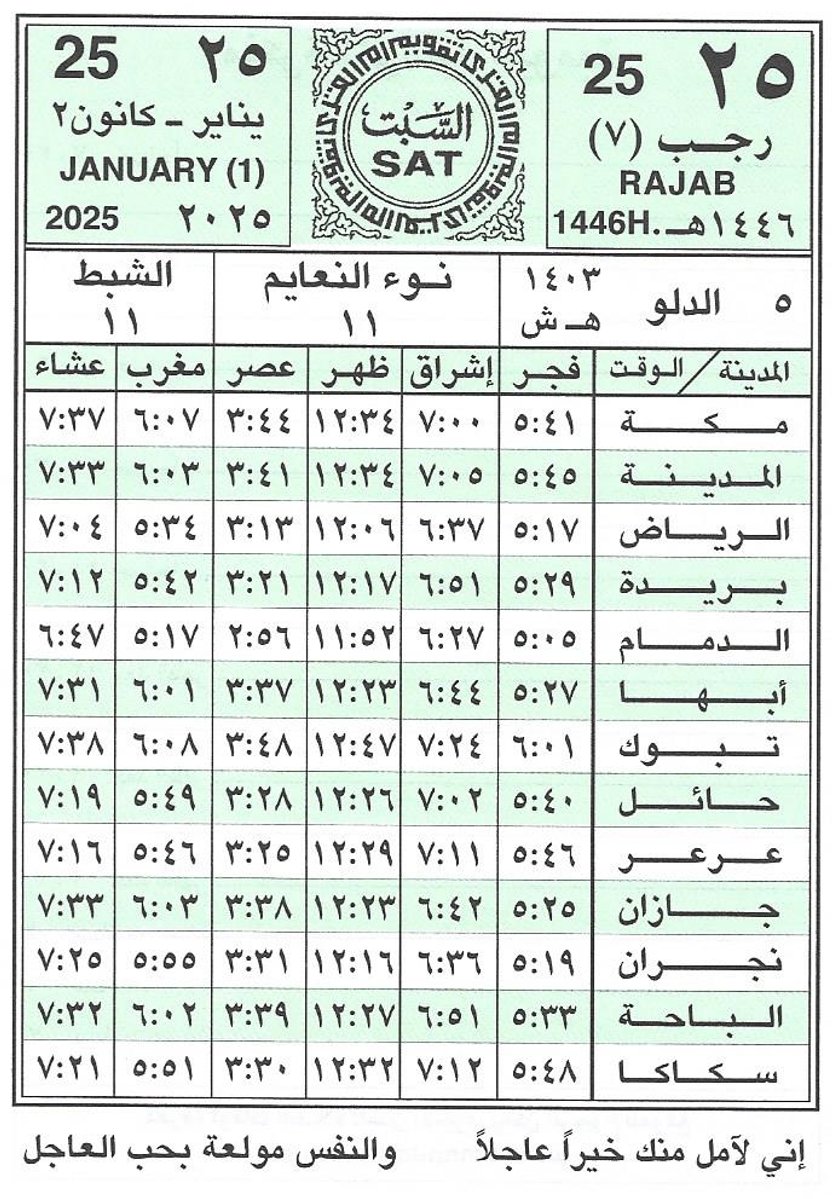 ٢٥ 25
رجـب (٧)
RAJAB
١٤٤٦هـ. 1446H
السَّبْت
SAT
٢٥ 25
يناير - كانون٢
JANUARY (1)
٢٠٢٥ 2025
٥ الدلو ١٤٠٣ هـ ش
نوء النعايم ١١
الشبط ١١
المدينة / الوقت فجر إشراق ظهر عصر مغرب عشاء
مكة ٥:٤١ ٧:٠٠ ١٢:٣٤ ٣:٤٤ ٦:٠٧ ٧:٣٧
المدينة ٥:٤٥ ٧:٠٥ ١٢:٣٤ ٣:٤١ ٦:٠٣ ٧:٣٣
الرياض ٥:١٧ ٦:٣٧ ١٢:٠٦ ٣:١٣ ٥:٣٤ ٧:٠٤
بريدة ٥:٢٩ ٦:٥١ ١٢:١٧ ٣:٢١ ٥:٤٢ ٧:١٢
الدمام ٥:٠٥ ٦:٢٧ ١١:٥٢ ٢:٥٦ ٥:١٧ ٦:٤٧
أبها ٥:٢٧ ٦:٤٤ ١٢:٢٣ ٣:٣٧ ٦:٠١ ٧:٣١
تبوك ٦:٠١ ٧:٢٤ ١٢:٤٧ ٣:٤٨ ٦:٠٨ ٧:٣٨
حائل ٥:٤٠ ٧:٠٢ ١٢:٢٦ ٣:٢٨ ٥:٤٩ ٧:١٩
عرعر ٥:٤٦ ٧:١١ ١٢:٢٩ ٣:٢٥ ٥:٤٦ ٧:١٦
جازان ٥:٢٥ ٦:٤٢ ١٢:٢٣ ٣:٣٨ ٦:٠٣ ٧:٣٣
نجران ٥:١٩ ٦:٣٦ ١٢:١٦ ٣:٣١ ٥:٥٥ ٧:٢٥
الباحة ٥:٣٣ ٦:٥١ ١٢:٢٧ ٣:٣٩ ٦:٠٢ ٧:٣٢
سكاكا ٥:٤٨ ٧:١٢ ١٢:٣٢ ٣:٣٠ ٥:٥١ ٧:٢١
إني لآمل منك خيراً عاجلاً والنفس مولعة بحب العاجل